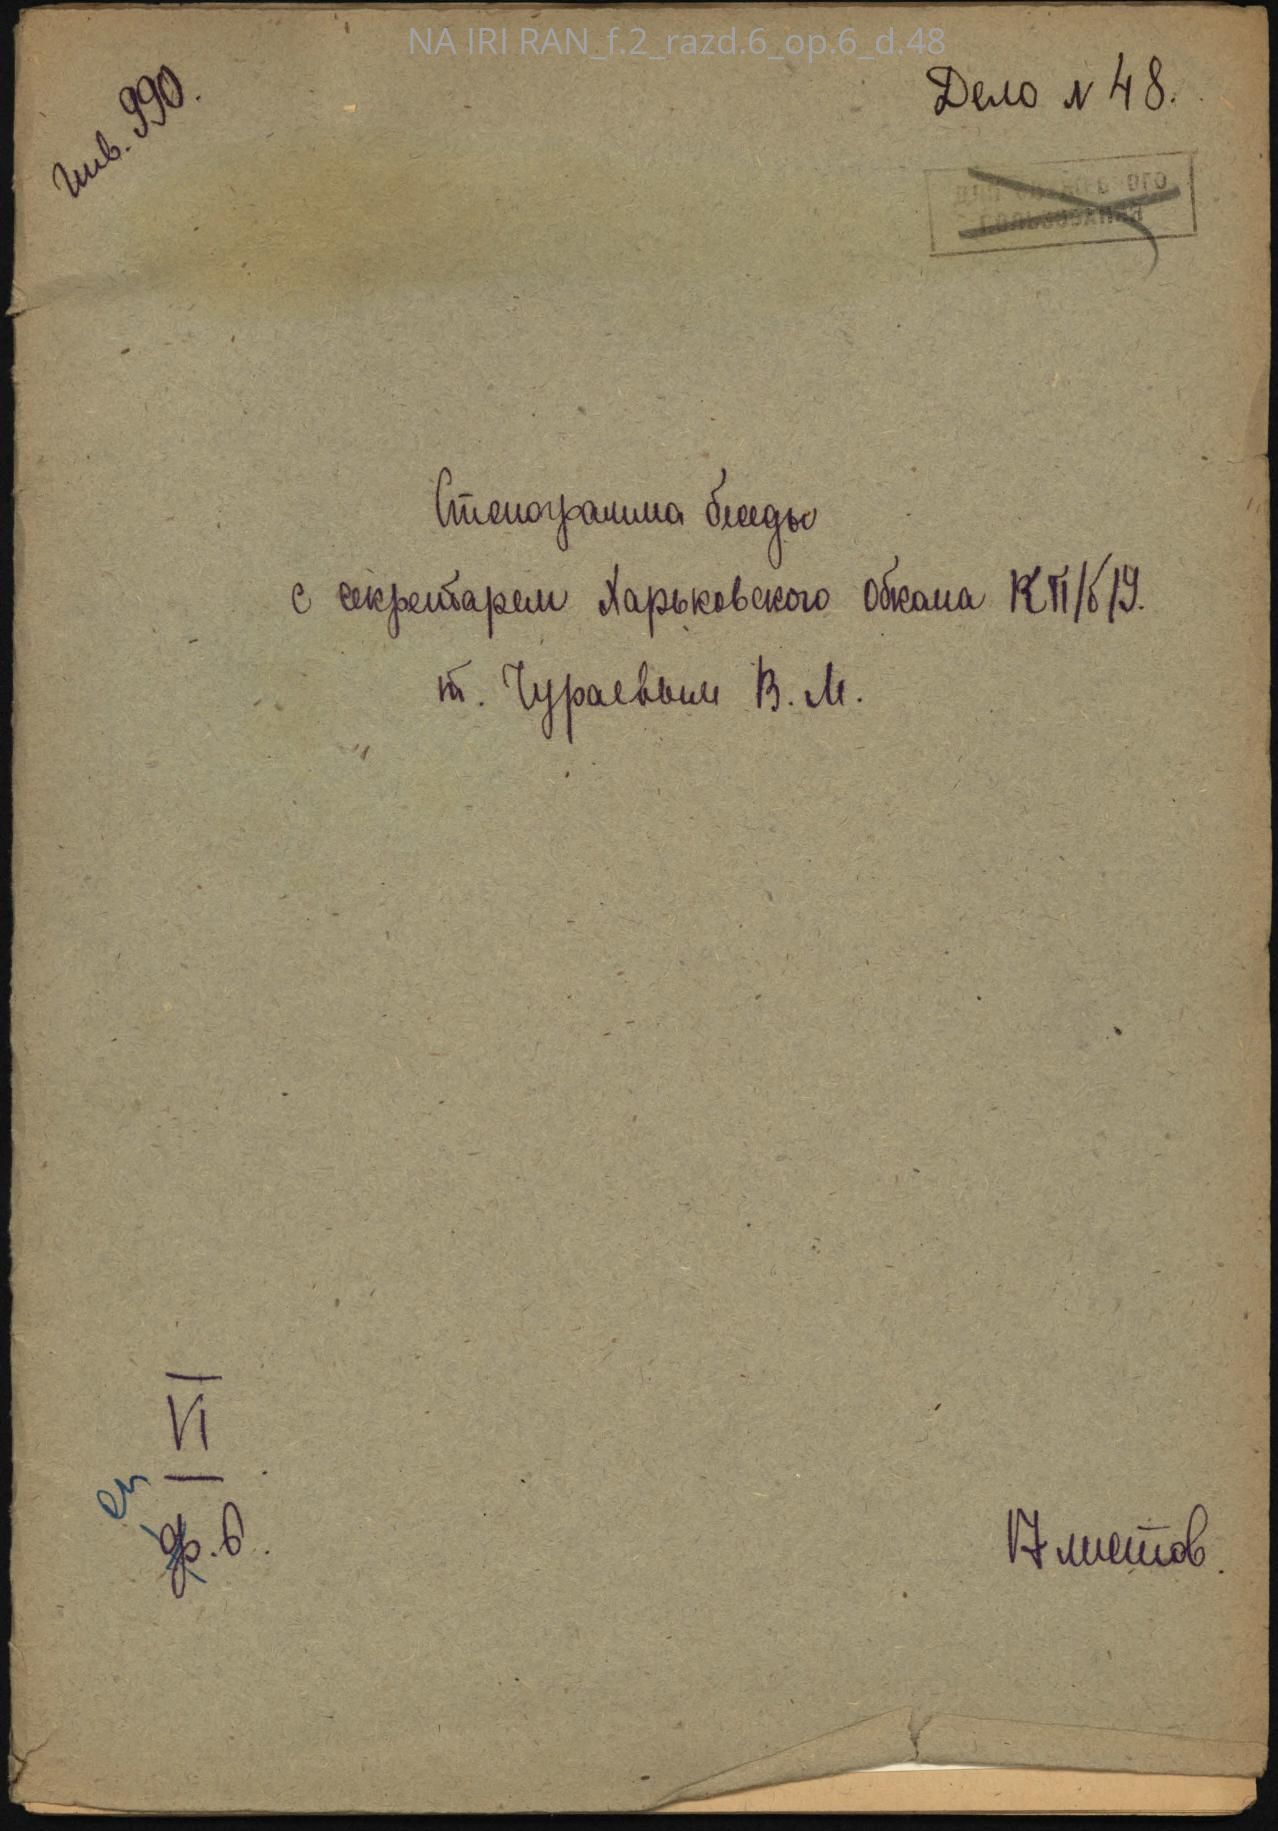 NA IRI RAN_f.2_razd.6_op.6_d.48
Инв. 990.
Дело № 48.
Стенограмма беседы
с секретарем Харьковского Обкома КП/б/У.
т. Чураевым В. М.
VI
ф. 6.
17 листов.